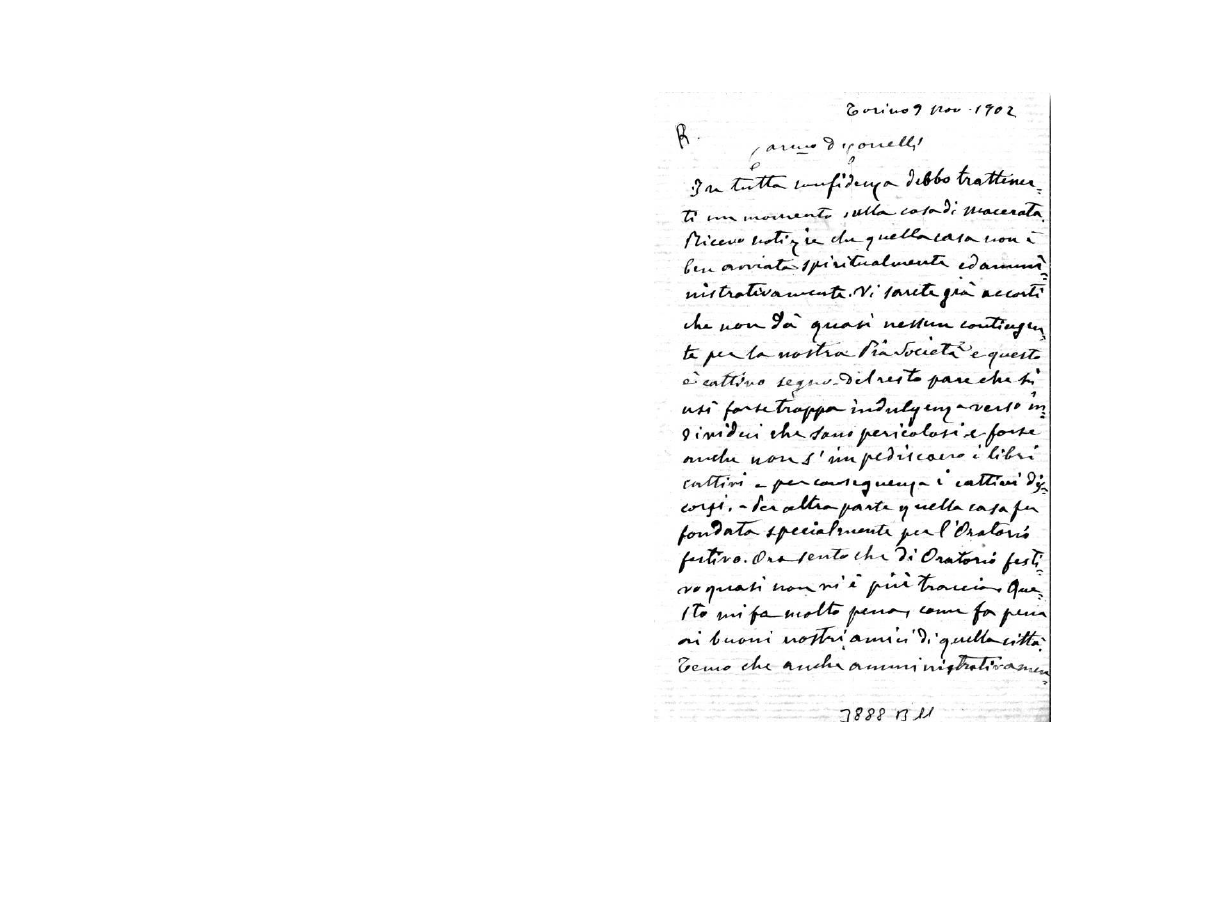 Torino 9 Nov. 1902
R.
Carmo D. Gonelli
In tutta confidenza debbo trattener-
ti un momento sulla casa di Macerata.
Ricevo notizie che quella casa non è
ben avviata spiritualmente ed ammi-
nistrativamente. Vi sarete già accorti
che non dà quasi nessun contingen-
te per la nostra Pia Società e questo
è cattivo segno. Del resto pare che si
usi forse troppa indulgenza verso in-
dividui che sono pericolosi e forse
anche non s'impediscono i libri
cattivi e per conseguenza i cattivi dis-
corsi. - Per altra parte quella casa fu
fondata specialmente per l'Oratorio
festivo. Ora sento che di Oratorio festi-
vo quasi non vi è più traccia. Que-
sto mi fa molto pena, come fa pena
ai buoni nostri amici di quella città.
Temo che anche amministrativamen-
3888 B 11